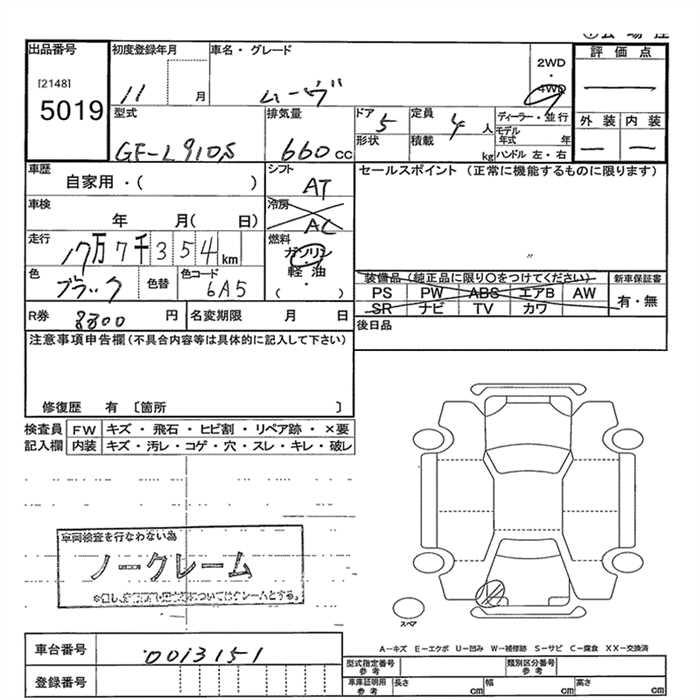 出品番号
[2148]
5019
初度登録年月
11
月
車名・グレード
ムーヴ
2WD
・
4WD
評価点
外装 内装
型式
GF-L910S
排気量
660 cc
ドア
5
形状
定員
4 人
積載
kg
ディーラー・並行
モデル年式 年
ハンドル 左・右
車歴
自家用・( )
シフト
AT
セールスポイント (正常に機能するものに限ります)
車検
年 月( 日)
冷房
AC
走行
17万7千354km
燃料
ガソリン
軽油・
( )
色
ブラック
色替
色コード
6A5
装備品(純正品に限り〇をつけてください)
PS PW ABS エアB AW
SR ナビ TV カワ
新車保証書
有・無
R券
8800 円
名変期限 月 日
後日品
注意事項申告欄(不具合内容等は具体的に記入して下さい)
修復歴 有 〔箇所 〕
検査員記入欄
FW キズ・飛石・ヒビ割・リペア跡・×要
内装 キズ・汚レ・コゲ・穴・スレ・キレ・破レ
車両検査を行なわない為
ノークレーム
スペア
A-キズ E-エクボ U-凹み W-補修跡 S-サビ C-腐食 XX-交換済
車台番号
0013151
登録番号
型式指定番号
参考
類別区分番号
参考
車庫証明用
参考
長さ cm 幅 cm 高さ cm